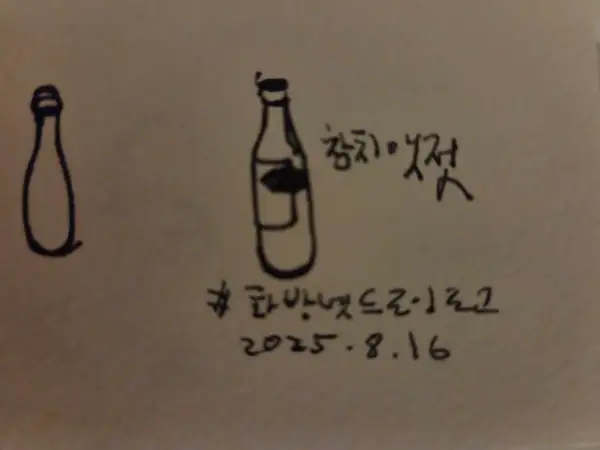 참치액젓
#화방넷드로잉로그
2025.8.16